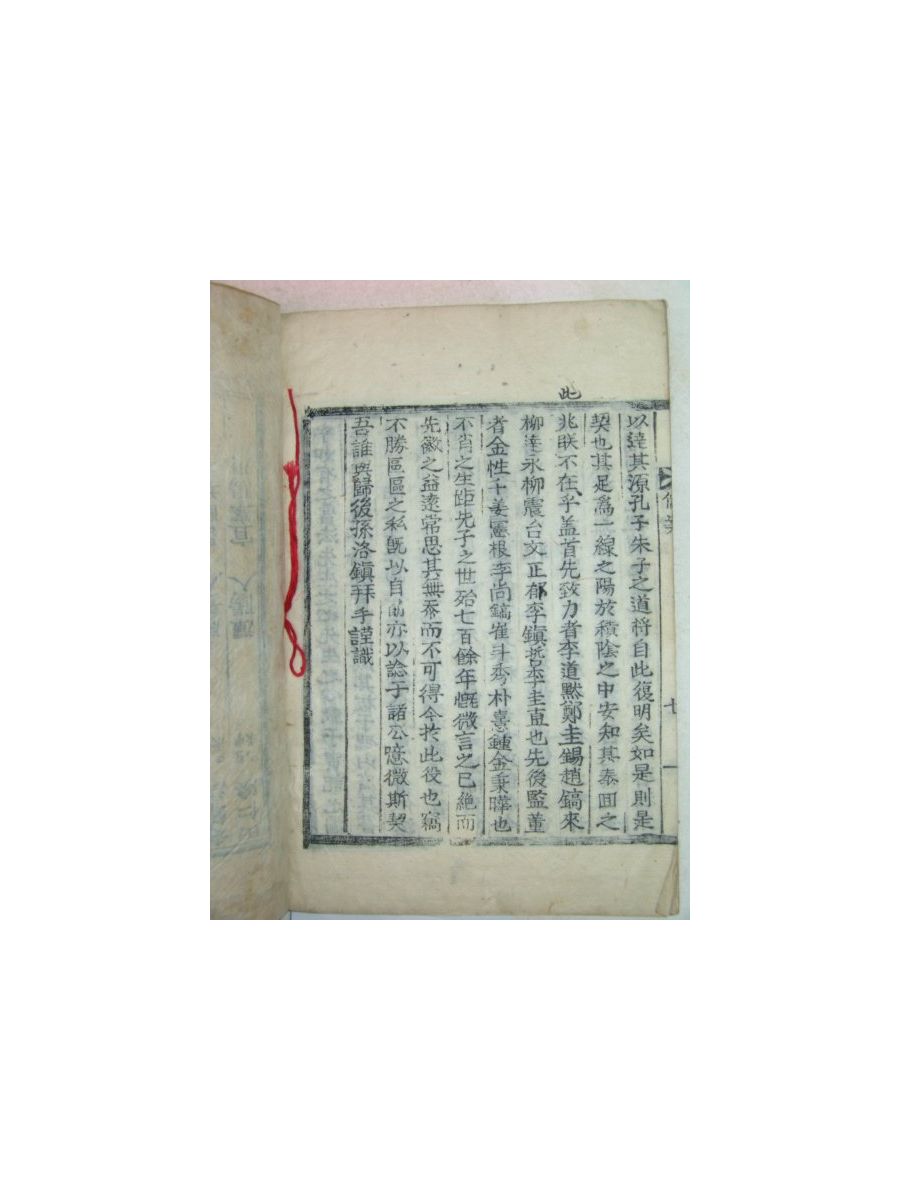 以達其源孔子朱子之道將自此復明矣如是則是
契也其足爲一線之陽於積陰之中安知其泰回之
此
兆眹不在乎盖首先致力者李道黙鄭圭錫趙鎬來
柳達永柳震台文正郁李鎭哲李圭直也先後監董
者金性千姜憲根李尚鎬崔斗秀朴憙鍾金秉曄也
不肖之生距先子之世殆七百餘年慨微言之已絶而
先徽之益遠常思其無忝而不可得今於此役也竊
不勝區區之私旣以自勵亦以諗于諸公噫微斯契
吾誰與歸後孫洛鎭拜手謹識
七